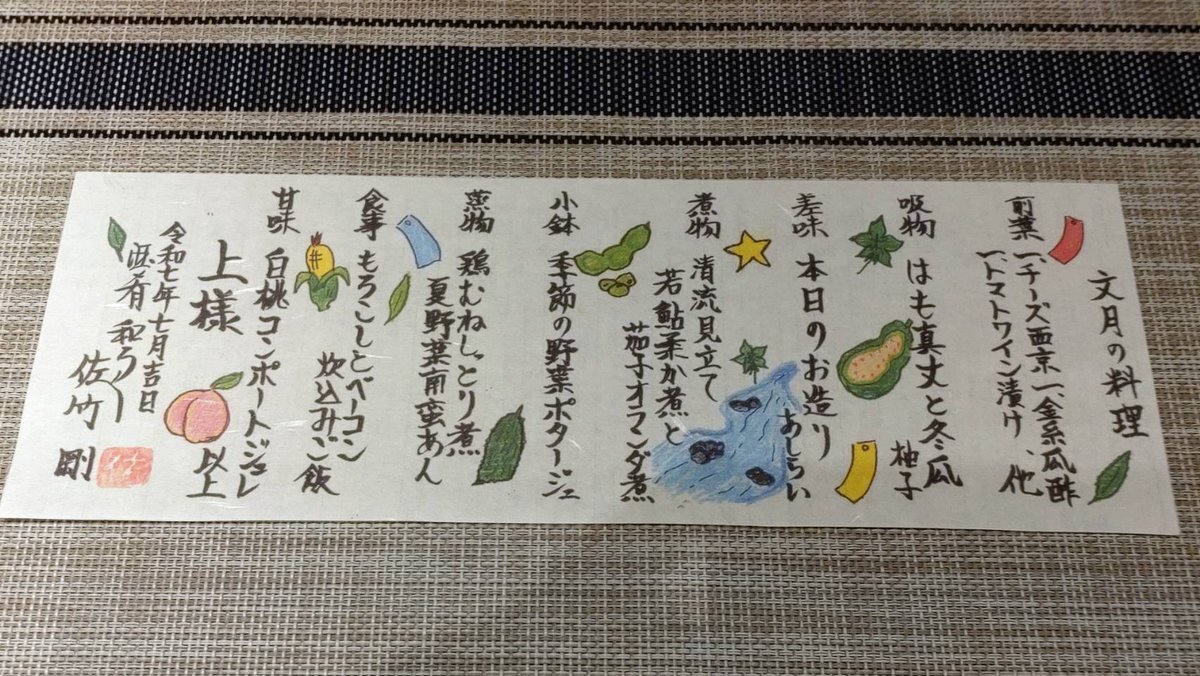 文月の料理
前菜 一、チーズ西京 一、金糸瓜酢
一、トマトワイン漬け、他
吸物 はも真丈と冬瓜
柚子
差味 本日のお造り
あしらい
煮物 清流見立て
若鮎柔か煮と
茄子オランダ煮
小鉢 季節の野菜ポタージュ
蒸物 鶏むねしっとり煮
夏野菜南蛮あん
食事 もろこしとベーコン
炊込みご飯
甘味 白桃コンポートジュレ
以上
上様
令和七年七月吉日
和
佐竹 剛